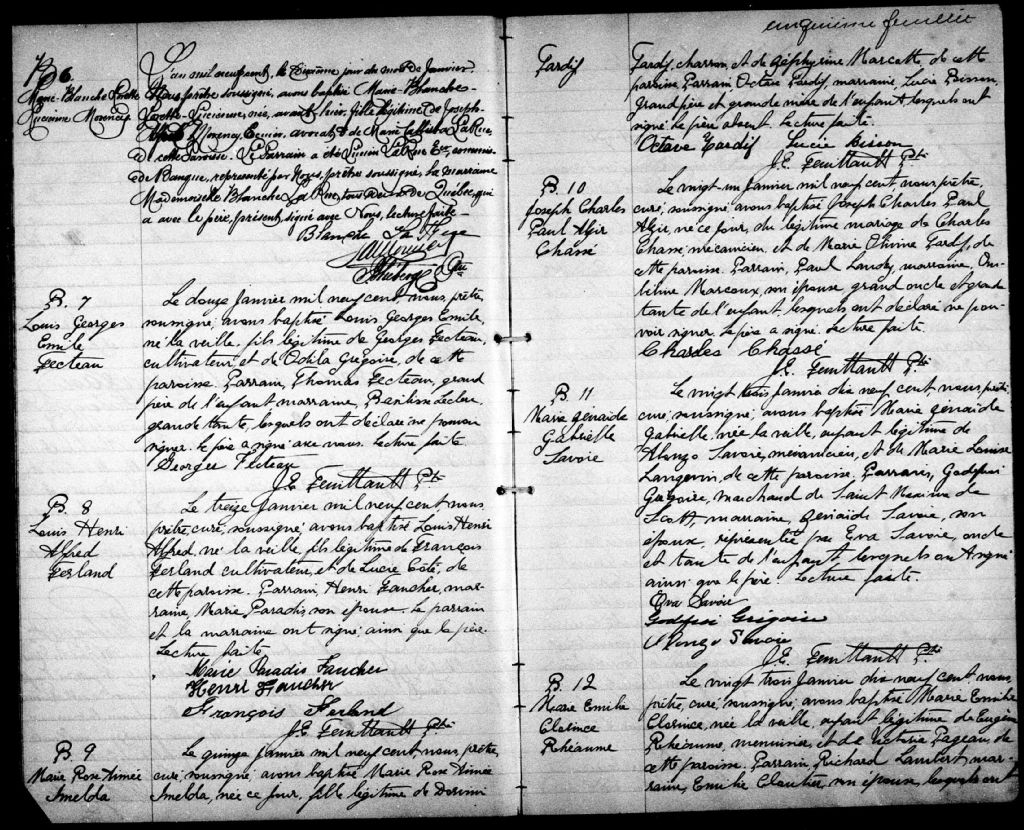 B. 6.
Marie-Blanche-Yvette
Lucienne Morency
L'an mil neuf cent, le dixième jour du mois de Janvier,
Nous, prêtre soussigné, avons baptisé Marie-Blanche-
Yvette-Lucienne, née, avant-hier, fille légitime de Joseph-
Alfred Morency, Ecuier, avocat, & de Marie LaRue,
de cette Paroisse. Le Parrain a été Lucien LaRue Ecr, commis
de Banque, représenté par Nous, prêtre soussigné, la marraine
Mademoiselle Blanche LaRue, tous deux de Québec, qui
a avec le père, présent, signé avec Nous, lecture faite.
Blanche
B. 7
Louis Georges
Emile
Fecteau
Le douze Janvier mil neuf cent, nous, prêtre,
soussigné, avons baptisé Louis Georges Emile,
né la veille, fils légitime de Georges Fecteau,
cultivateur, et de Odila Grégoire, de cette
paroisse. Parrain, Thomas Fecteau, grand
père de l'enfant, marraine, Leclerc,
grande tante, lesquels ont déclaré ne pouvoir
signer. le père a signé avec nous. Lecture faite
Georges Fecteau
J. E. Feuiltault Ptr
B. 8
Louis Henri
Alfred
Ferland
Le treize Janvier mil neuf cent, nous
prêtre, curé, soussigné, avons baptisé Louis Henri
Alfred, né la veille, fils légitime de François
Ferland cultivateur, et de Lucie Côté, de
cette paroisse. Parrain, Henri Faucher, mar-
raine, Marie Paradis, son épouse. Le parrain
et la marraine ont signé ainsi que le père.
Lecture faite
Marie Paradis Faucher
Henri Faucher
François Ferland
J. E. Feuiltault Ptr
B. 9
Marie Rose Aimée
Imelda
Le quinze Janvier mil neuf cent, nous, prêtre,
curé, soussigné, avons baptisé Marie Rose Aimée
Imelda, née ce jour, fille légitime de
cinquième feuillet
Tardif
Tardif, charron, et de Zéphyrine Marcotte, de cette
paroisse. Parrain Octave Tardif, marraine, Lucie Bisson,
grand père et grande mère de l'enfant, lesquels ont
signé. le père absent. Lecture faite.
Octave Tardif Lucie Bisson
J. E. Feuiltault Ptr
B. 10
Joseph Charles
Paul
Chassé
Le vingt un Janvier mil neuf cent, nous, prêtre,
curé, soussigné, avons baptisé Joseph Charles Paul
né ce jour, du légitime mariage de Charles
Chassé, mécanicien, et de Marie Olivine Tardif, de
cette paroisse. Parrain, Paul Landry, marraine,
Marcoux, son épouse, grand oncle et grande
tante de l'enfant, lesquels ont déclaré ne pou-
voir signer. le père a signé. Lecture faite.
Charles Chassé
J. E. Feuiltault Ptr
B. 11
Marie Zénaïde
Gabrielle
Savoie
Le vingt trois Janvier dix neuf cent, nous, prêtre
curé, soussigné, avons baptisé Marie Zénaïde
Gabrielle, née la veille, enfant légitime de
Alonzo Savoie, mécanicien, et de Marie Louise
Langevin, de cette paroisse. Parrain, Godfroi
Grégoire, marchand de Saint Maxime de
Scott, marraine, Zénaïde Savoie, son
épouse, représentée par Eva Savoie, oncle
et tante de l'enfant, lesquels ont signé
ainsi que le père. Lecture faite.
Eva Savoie
Godfroi Grégoire
Alonzo Savoie
J. E. Feuiltault Ptr
B. 12
Marie Emilie
Clarince
Rhéaume
Le vingt trois Janvier dix neuf cent, nous,
prêtre, curé, soussigné, avons baptisé Marie Emilie
Clarince, née la veille, enfant légitime de Eugène
Rhéaume, menuisier, et de Victoria Pageau, de
cette paroisse. Parrain, Richard Lambert, mar-
raine, Emilie Cloutier, son épouse, lesquels ont